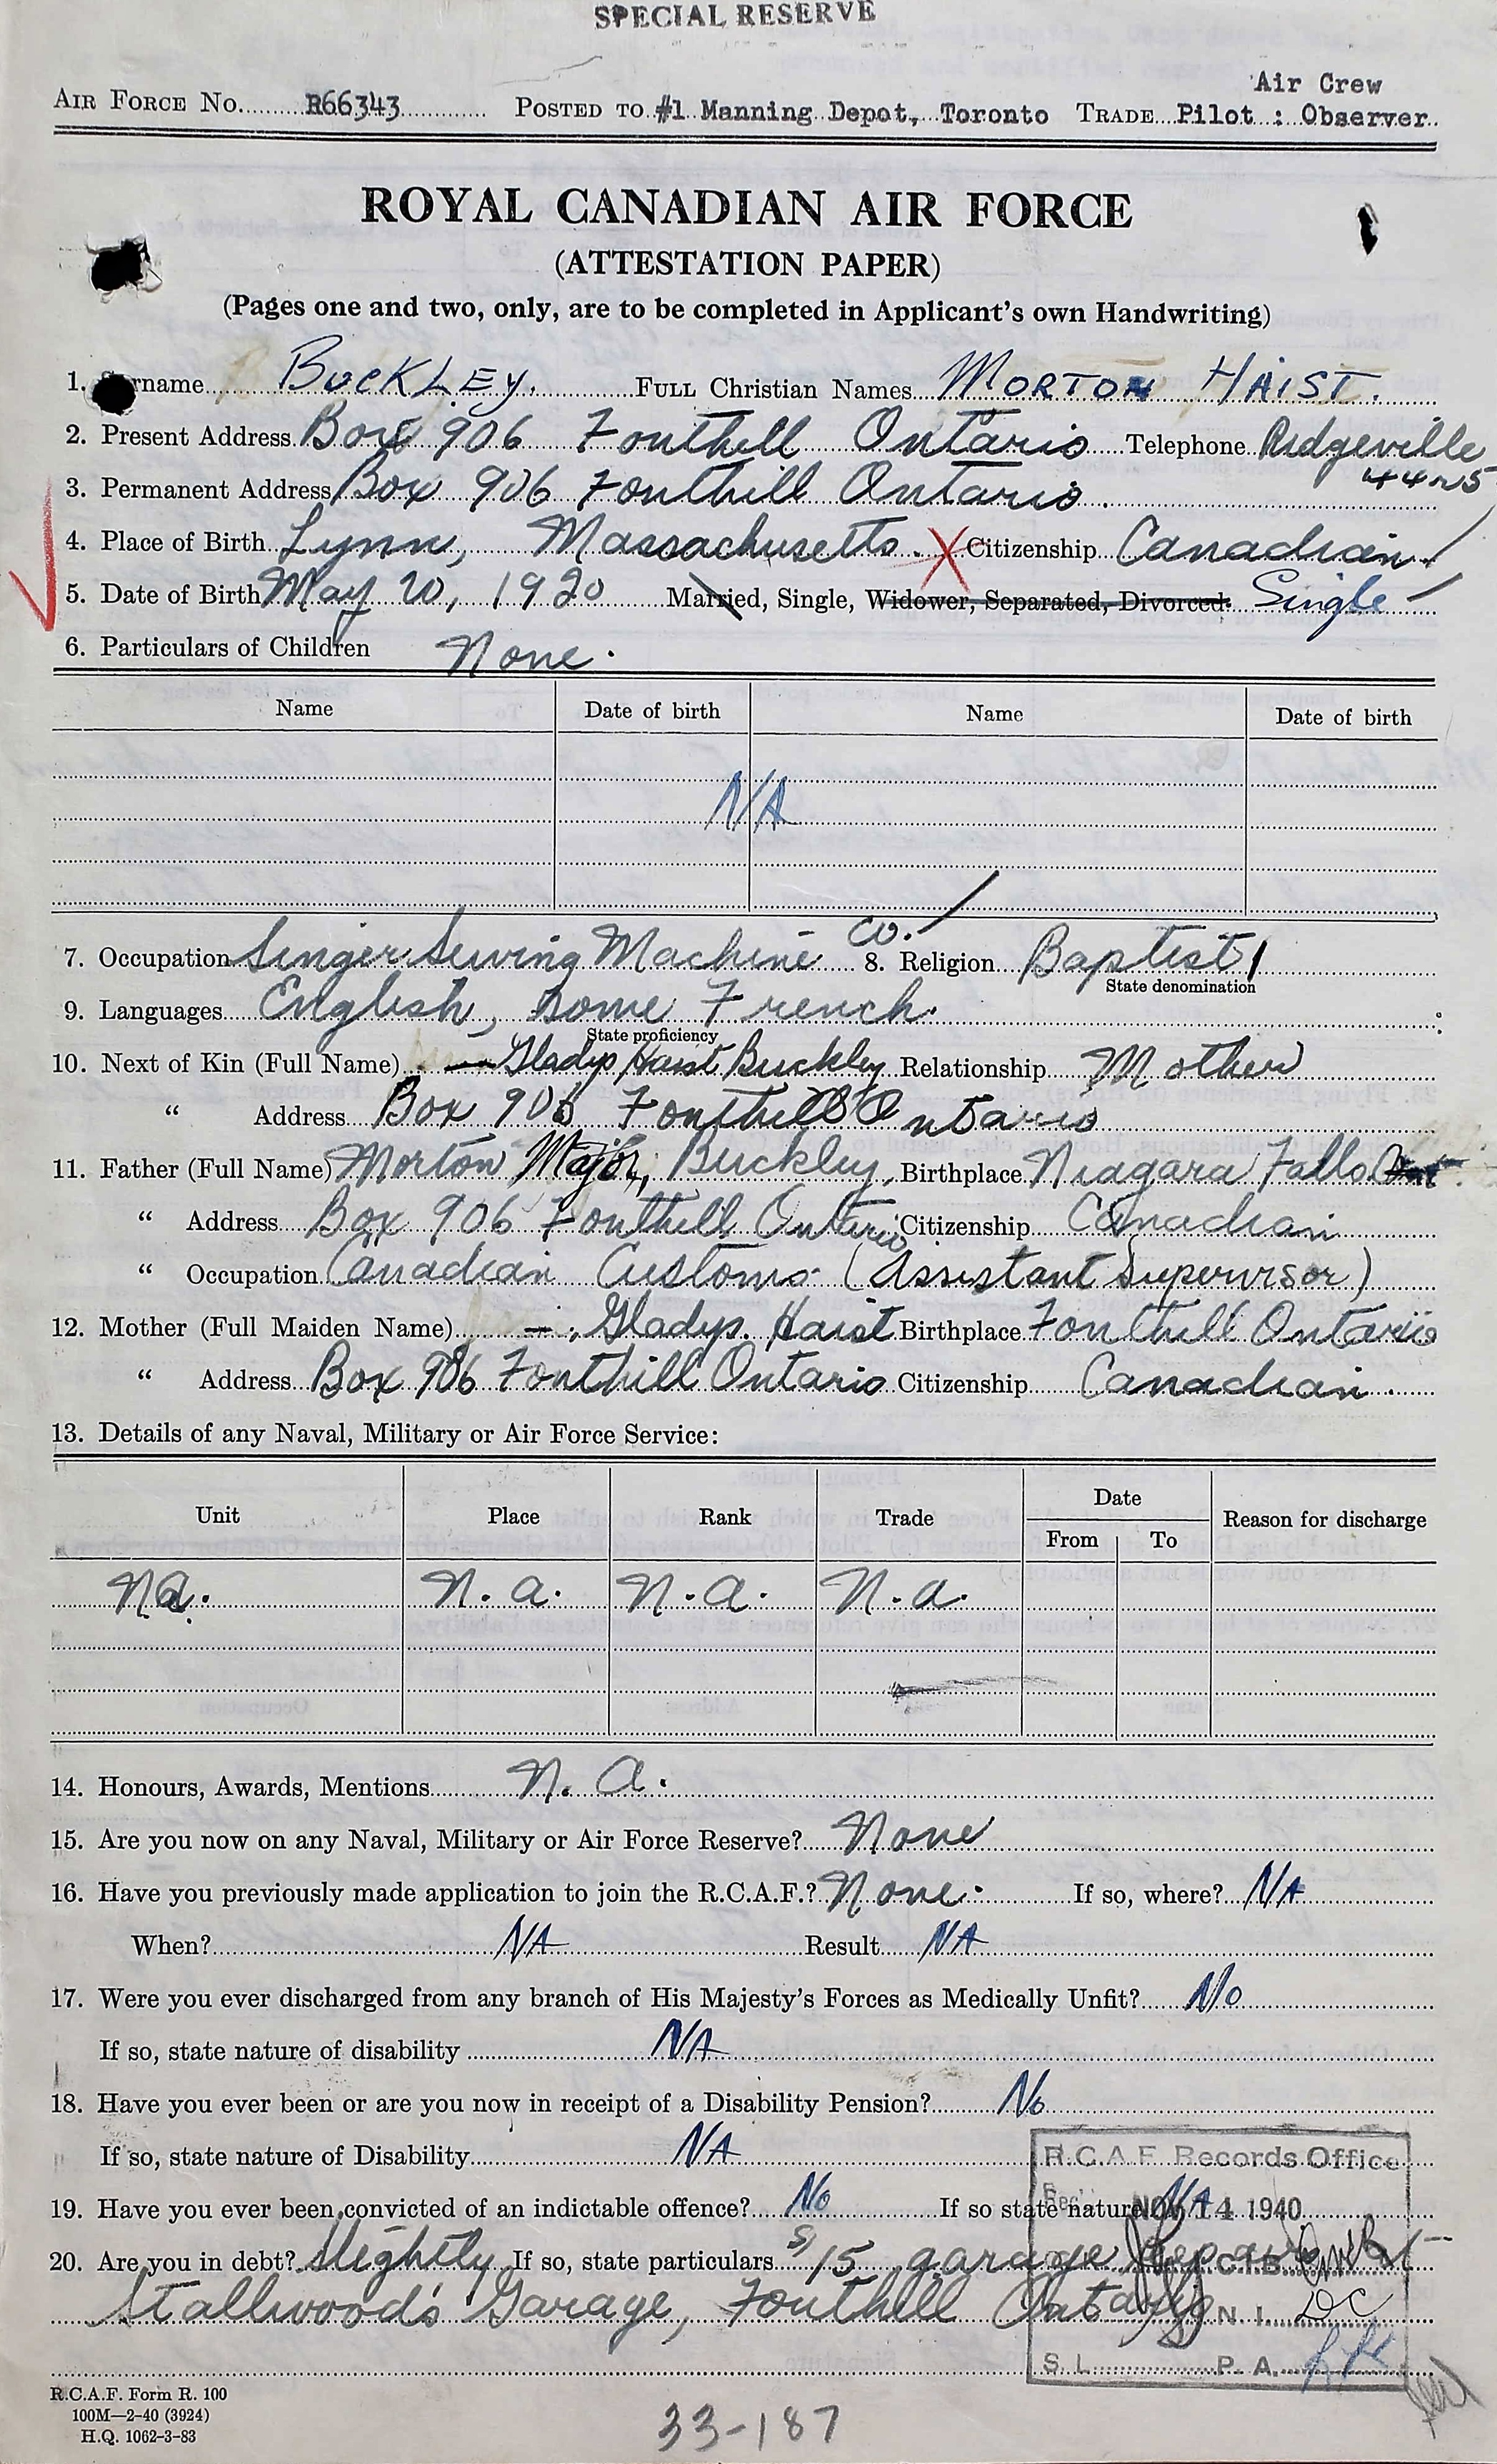 SPECIAL RESERVE
Air Crew
AIR FORCE NO. R66343 POSTED TO #1 Manning Depot, Toronto TRADE Pilot : Observer
ROYAL CANADIAN AIR FORCE
(ATTESTATION PAPER)
(Pages one and two, only, are to be completed in Applicant's own Handwriting)
1. Surname BUCKLEY. FULL Christian Names MORTON HAIST.
2. Present Address Box 906 Fonthill Ontario Telephone Ridgeville
44r5
3. Permanent Address Box 906 Fonthill Ontario.
4. Place of Birth Lynn, Massachusetts. X Citizenship Canadian
5. Date of Birth May 20, 1920 Married, Single, Widower, Separated, Divorced: Single
6. Particulars of Children None.
Name Date of birth Name Date of birth
N/A
7. Occupation Singer Sewing Machine Co. 8. Religion Baptist
State denomination
9. Languages English, some French.
State proficiency
10. Next of Kin (Full Name) Gladys Haist Buckley Relationship Mother
" Address Box 906 Fonthill Ontario
11. Father (Full Name) Morton Major, Buckley, Birthplace Niagara Falls Ont.
" Address Box 906 Fonthill Ontario Citizenship Canadian
" Occupation Canadian Customs (Assistant Supervisor)
12. Mother (Full Maiden Name) Gladys. Haist Birthplace Fonthill Ontario
" Address Box 906 Fonthill Ontario Citizenship Canadian.
13. Details of any Naval, Military or Air Force Service:
Unit Place Rank Trade Date Reason for discharge
From To
N.a. N.a. N.a. N.a.
14. Honours, Awards, Mentions N.a.
15. Are you now on any Naval, Military or Air Force Reserve? None
16. Have you previously made application to join the R.C.A.F.? None. If so, where? NA
When? NA Result NA
17. Were you ever discharged from any branch of His Majesty's Forces as Medically Unfit? No
If so, state nature of disability NA
18. Have you ever been or are you now in receipt of a Disability Pension? No
If so, state nature of Disability NA
R.C.A.F. Records Office
19. Have you ever been convicted of an indictable offence? No If so state nature NA
NOV 14 1940
20. Are you in debt? Slightly If so, state particulars $15 garage repairs at
C.I.B.
Stallwood's Garage, Fonthill Ontario
N. I. DC
S. L. P. A.
R.C.A.F. Form R. 100
100M—2-40 (3924)
H.Q. 1062-3-83
33-187